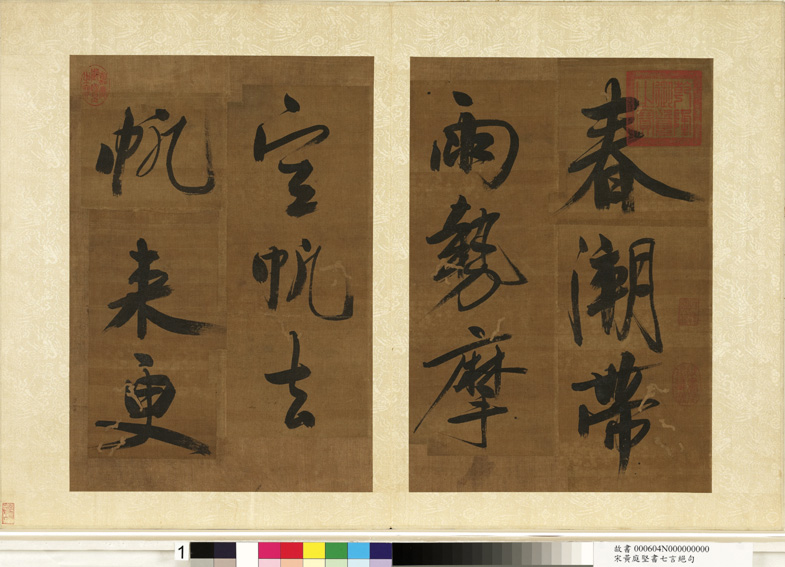 春潮帶
雨勢摩
空帆去
帆來更
1
故書 000604N000000000
宋黃庭堅書七言絕句